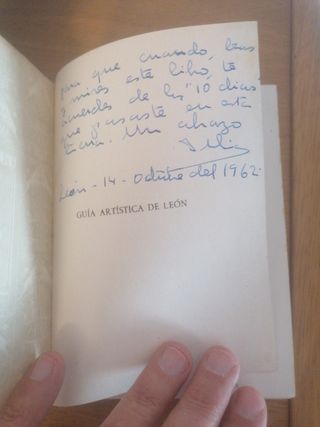 para que cuando, leas
y mires este libro, te
acuerdes de los "10 dias
que pasaste en esta
tierra. Un abrazo
León - 14 - Octubre del 1962.
GUÍA ARTÍSTICA DE LEÓN